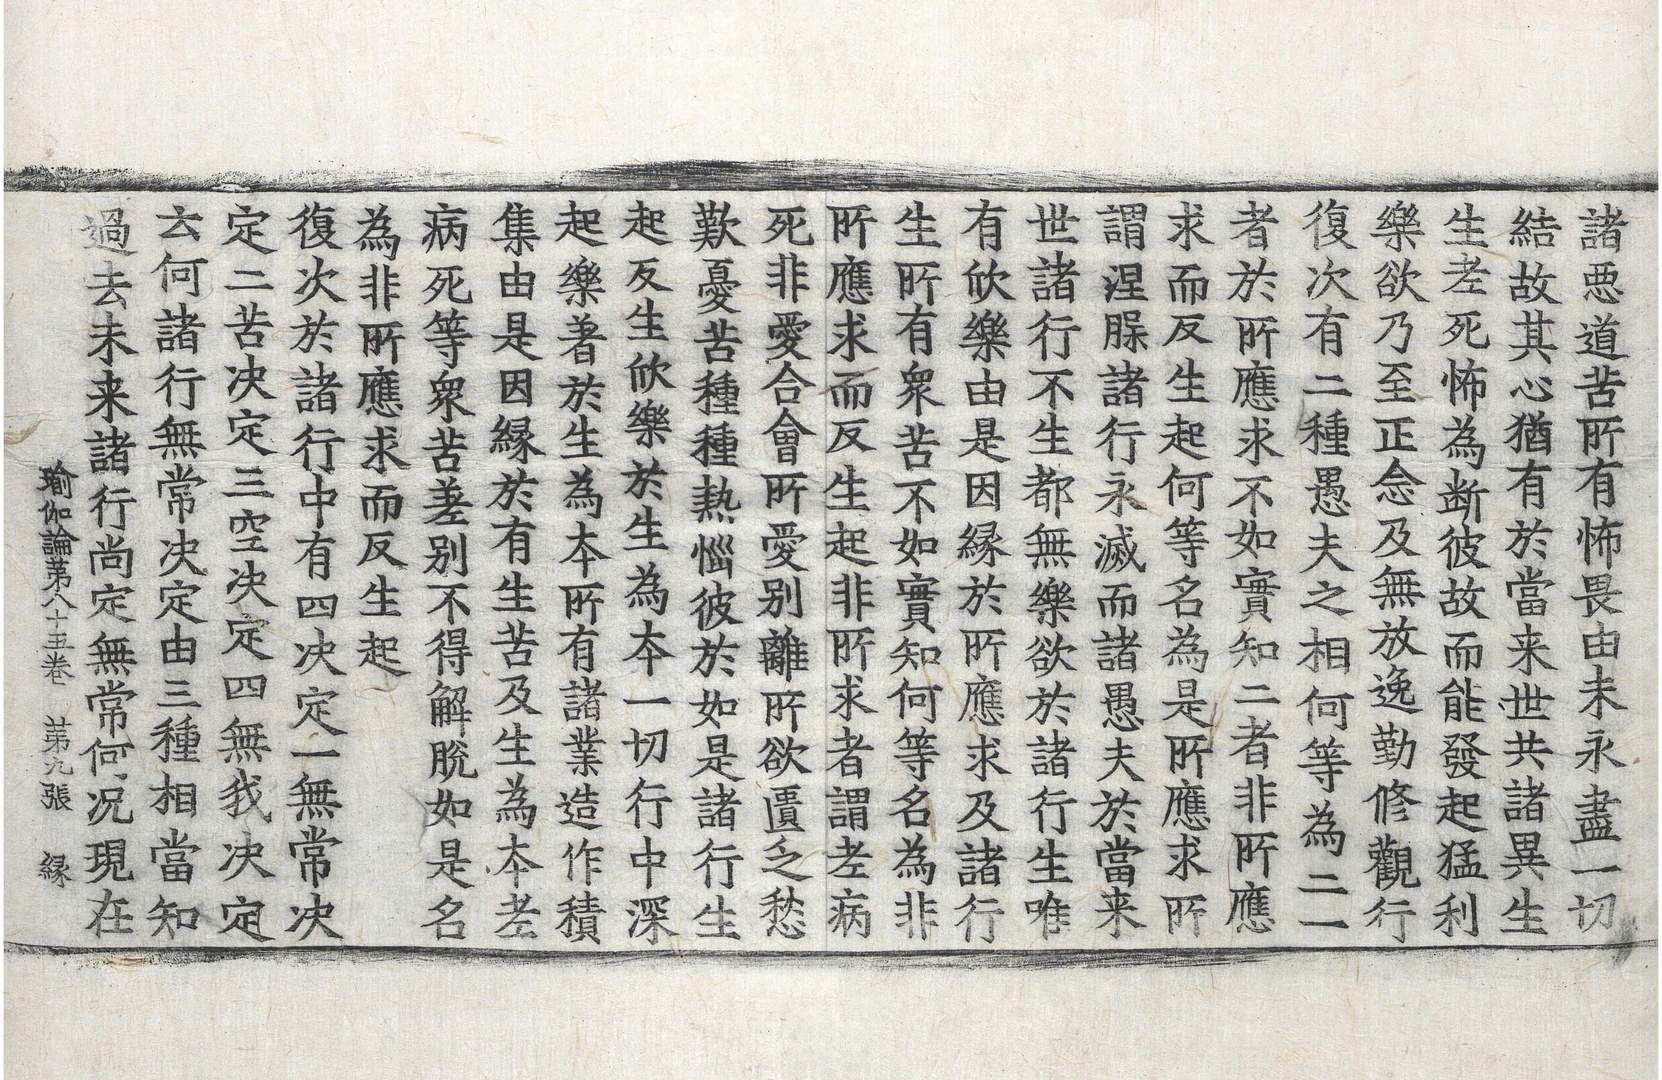 諸惡道苦所有怖畏由未永盡一切
結故其心猶有於當来世共諸異生
生老死怖為断彼故而能發起猛利
樂欲乃至正念及無放逸勤修觀行
復次有二種愚夫之相何等為二一
者於所應求不如實知二者非所應
求而反生起何等名為是所應求所
謂涅槃諸行永滅而諸愚夫於當来
世諸行不生都無樂欲於諸行生唯
有欣樂由是因縁於所應求及諸行
生所有衆苦不如實知何等名為非
所應求而反生起非所求者謂老病
死非愛合會所愛別離所欲匱乏愁
歎憂苦種種熱惱彼於如是諸行生
起反生欣樂於生為本一切行中深
起樂著於生為本所有諸業造作積
集由是因縁於有生苦及生為本老
病死等衆苦差別不得解脫如是名
為非所應求而反生起
復次於諸行中有四决定一無常决
定二苦决定三空决定四無我决定
云何諸行無常决定由三種相當知
過去未来諸行尚定無常何况現在
瑜伽論第八十五卷 第九張 縁